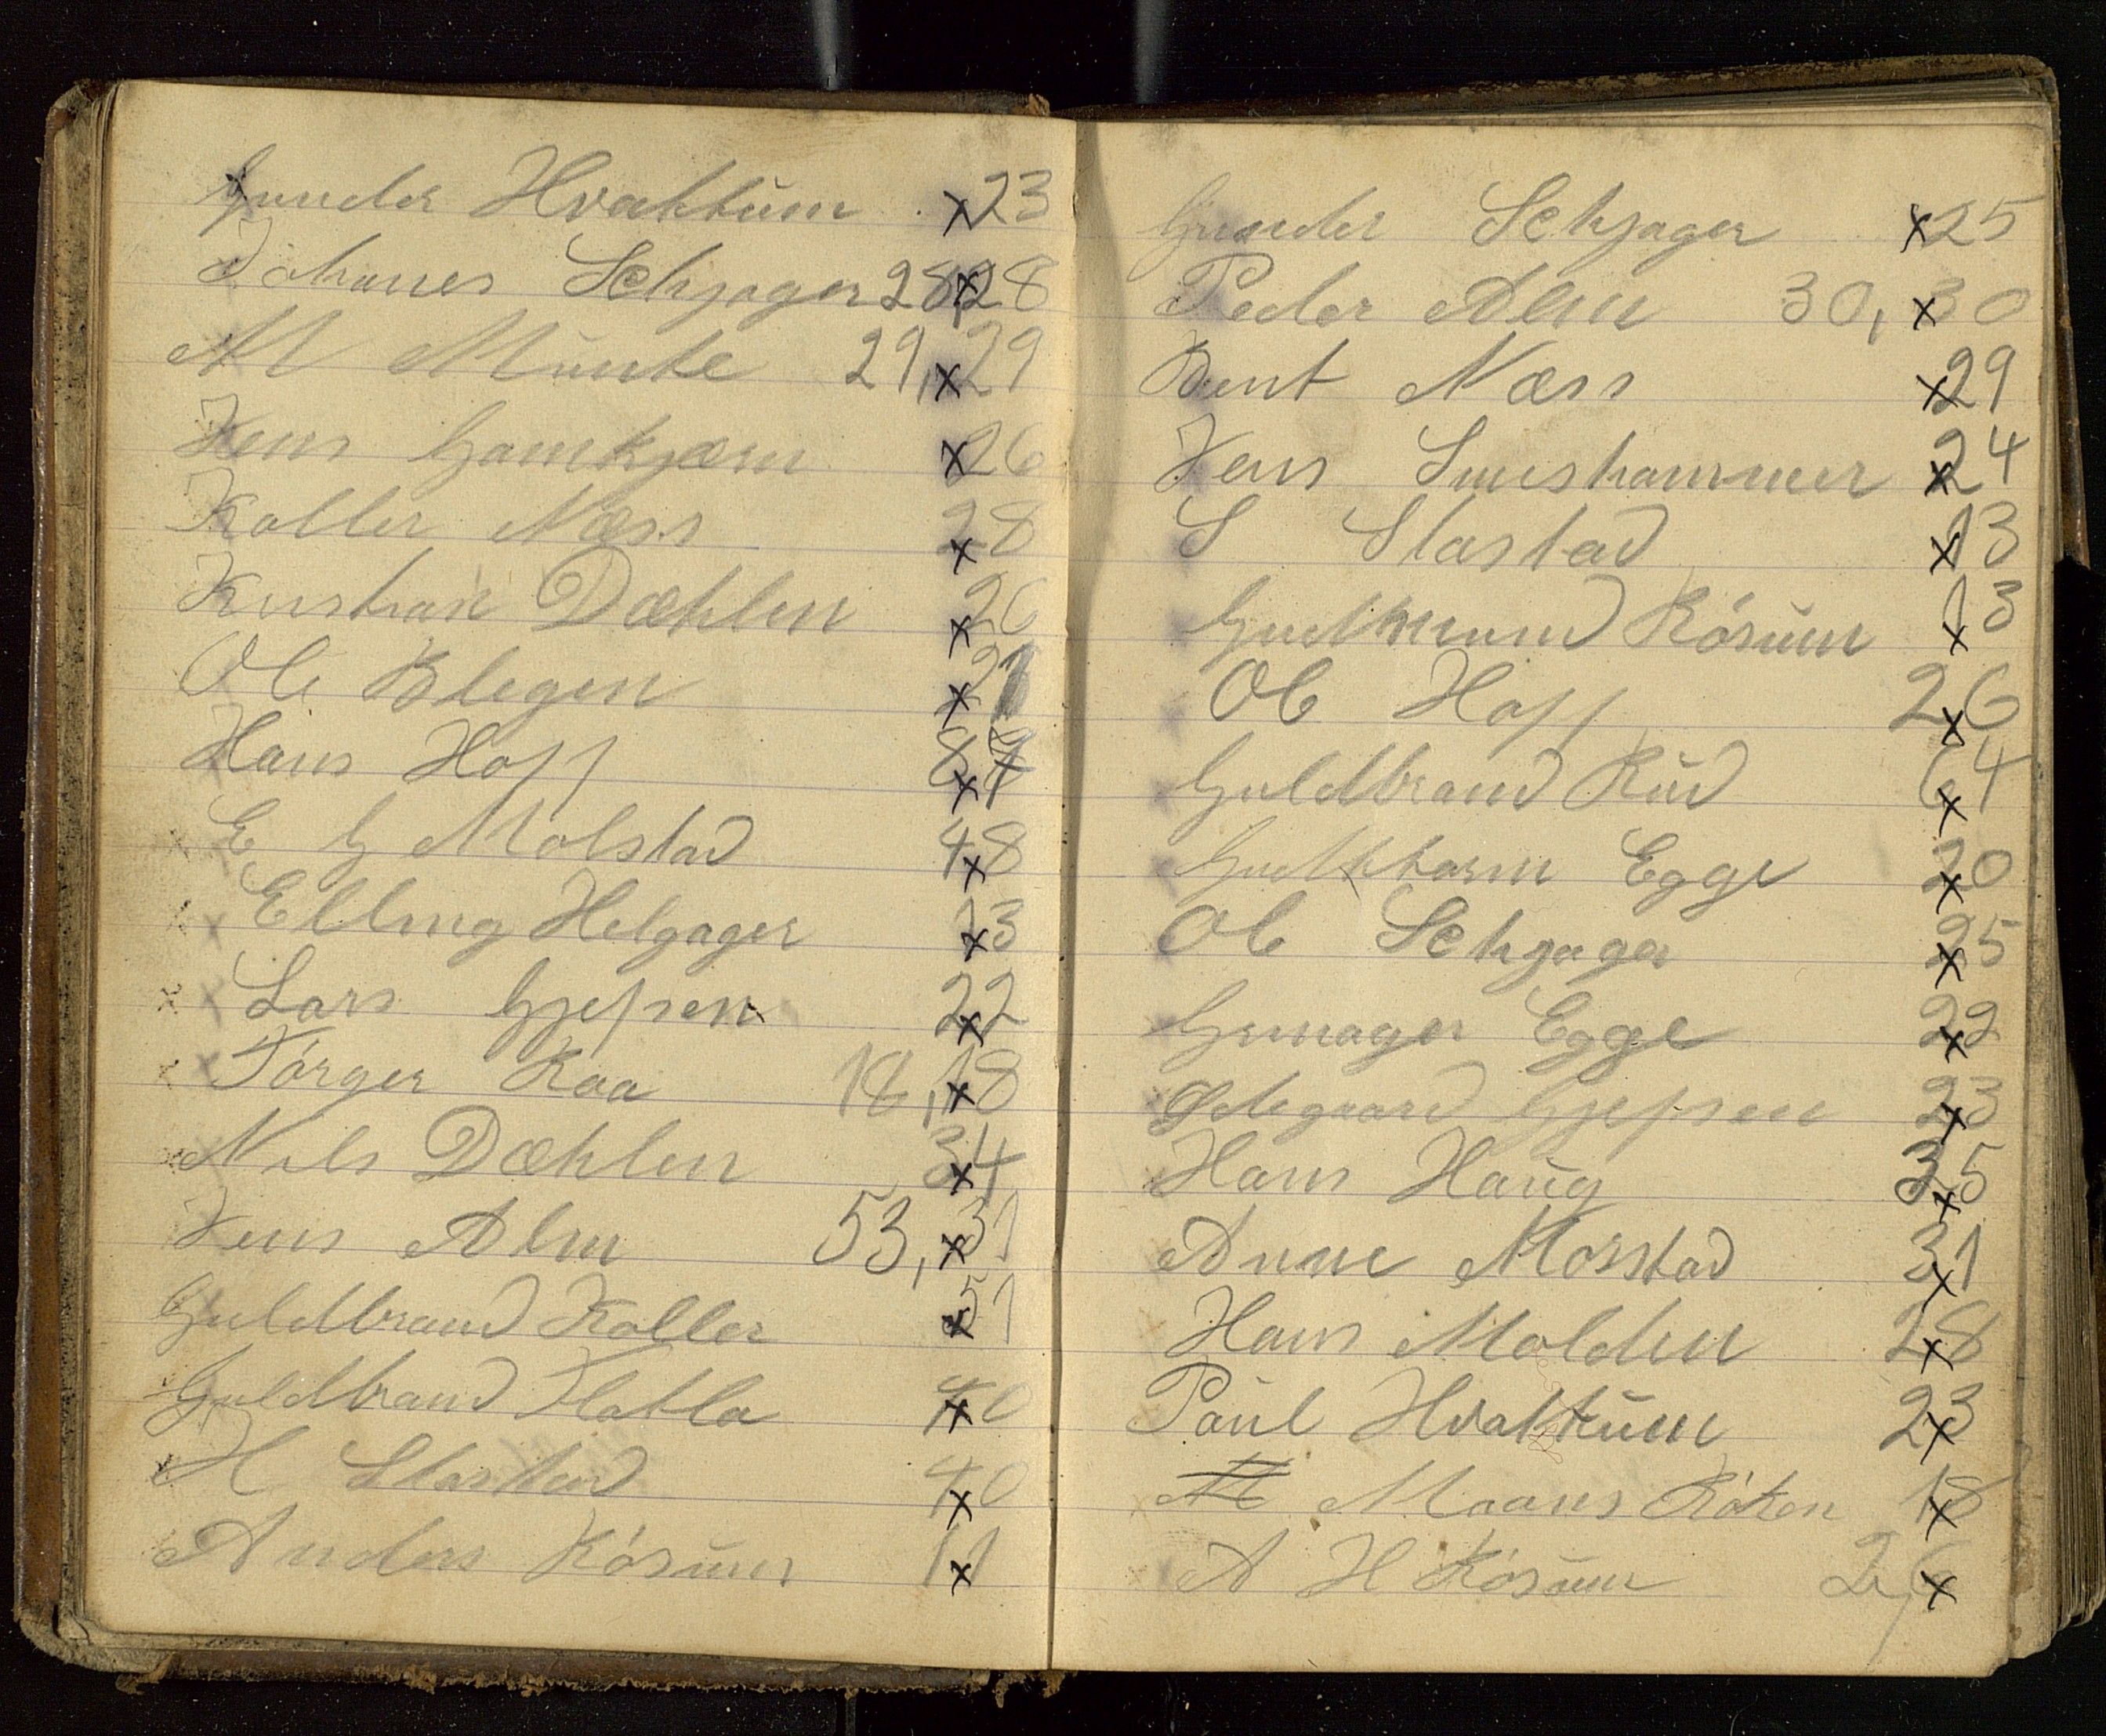 Gunder Hvattum x 23
Johanes Sehjager 28, x 28
M Munte 29, x 29
Jens Gamkjærn x 26
Koller Næss x 28
Kristian Dæhlen x 26
Ole Blegen x 21
Hans Hoff x
E G Molstad 4 x 8
Elling Helgager x 13
Lars Gjefsen 22 x
Törger Kaa 18, x 18
Nils Dæhlen 34 x
Jens Alm 53, x 31
Guldbrand Koller x 51
Guldbrand Flatla x 40
H Slastad 40 x
Anders Rósum 11 x
Gunder Sehjager x 25
Peder Alm 30, x 30
Bent Næss x 29
Jens Smeshammer x 24
S Slastad x 13
Gudmund Rósum 13 x
Ole Hoff 26 x
Guldbrand Rud 64 x
Gudttorm Egge 20 x
Ole Sehjager 25 x
Grinager Egge 22 x
Ödegaard Gjefsen 23 x
Hans Haug 35 x
Anne Morstad 31 x
Hans Molden 28 x
Paul Hvattum 23 x
Maans Róken 18 x
A H Rósum 26 x